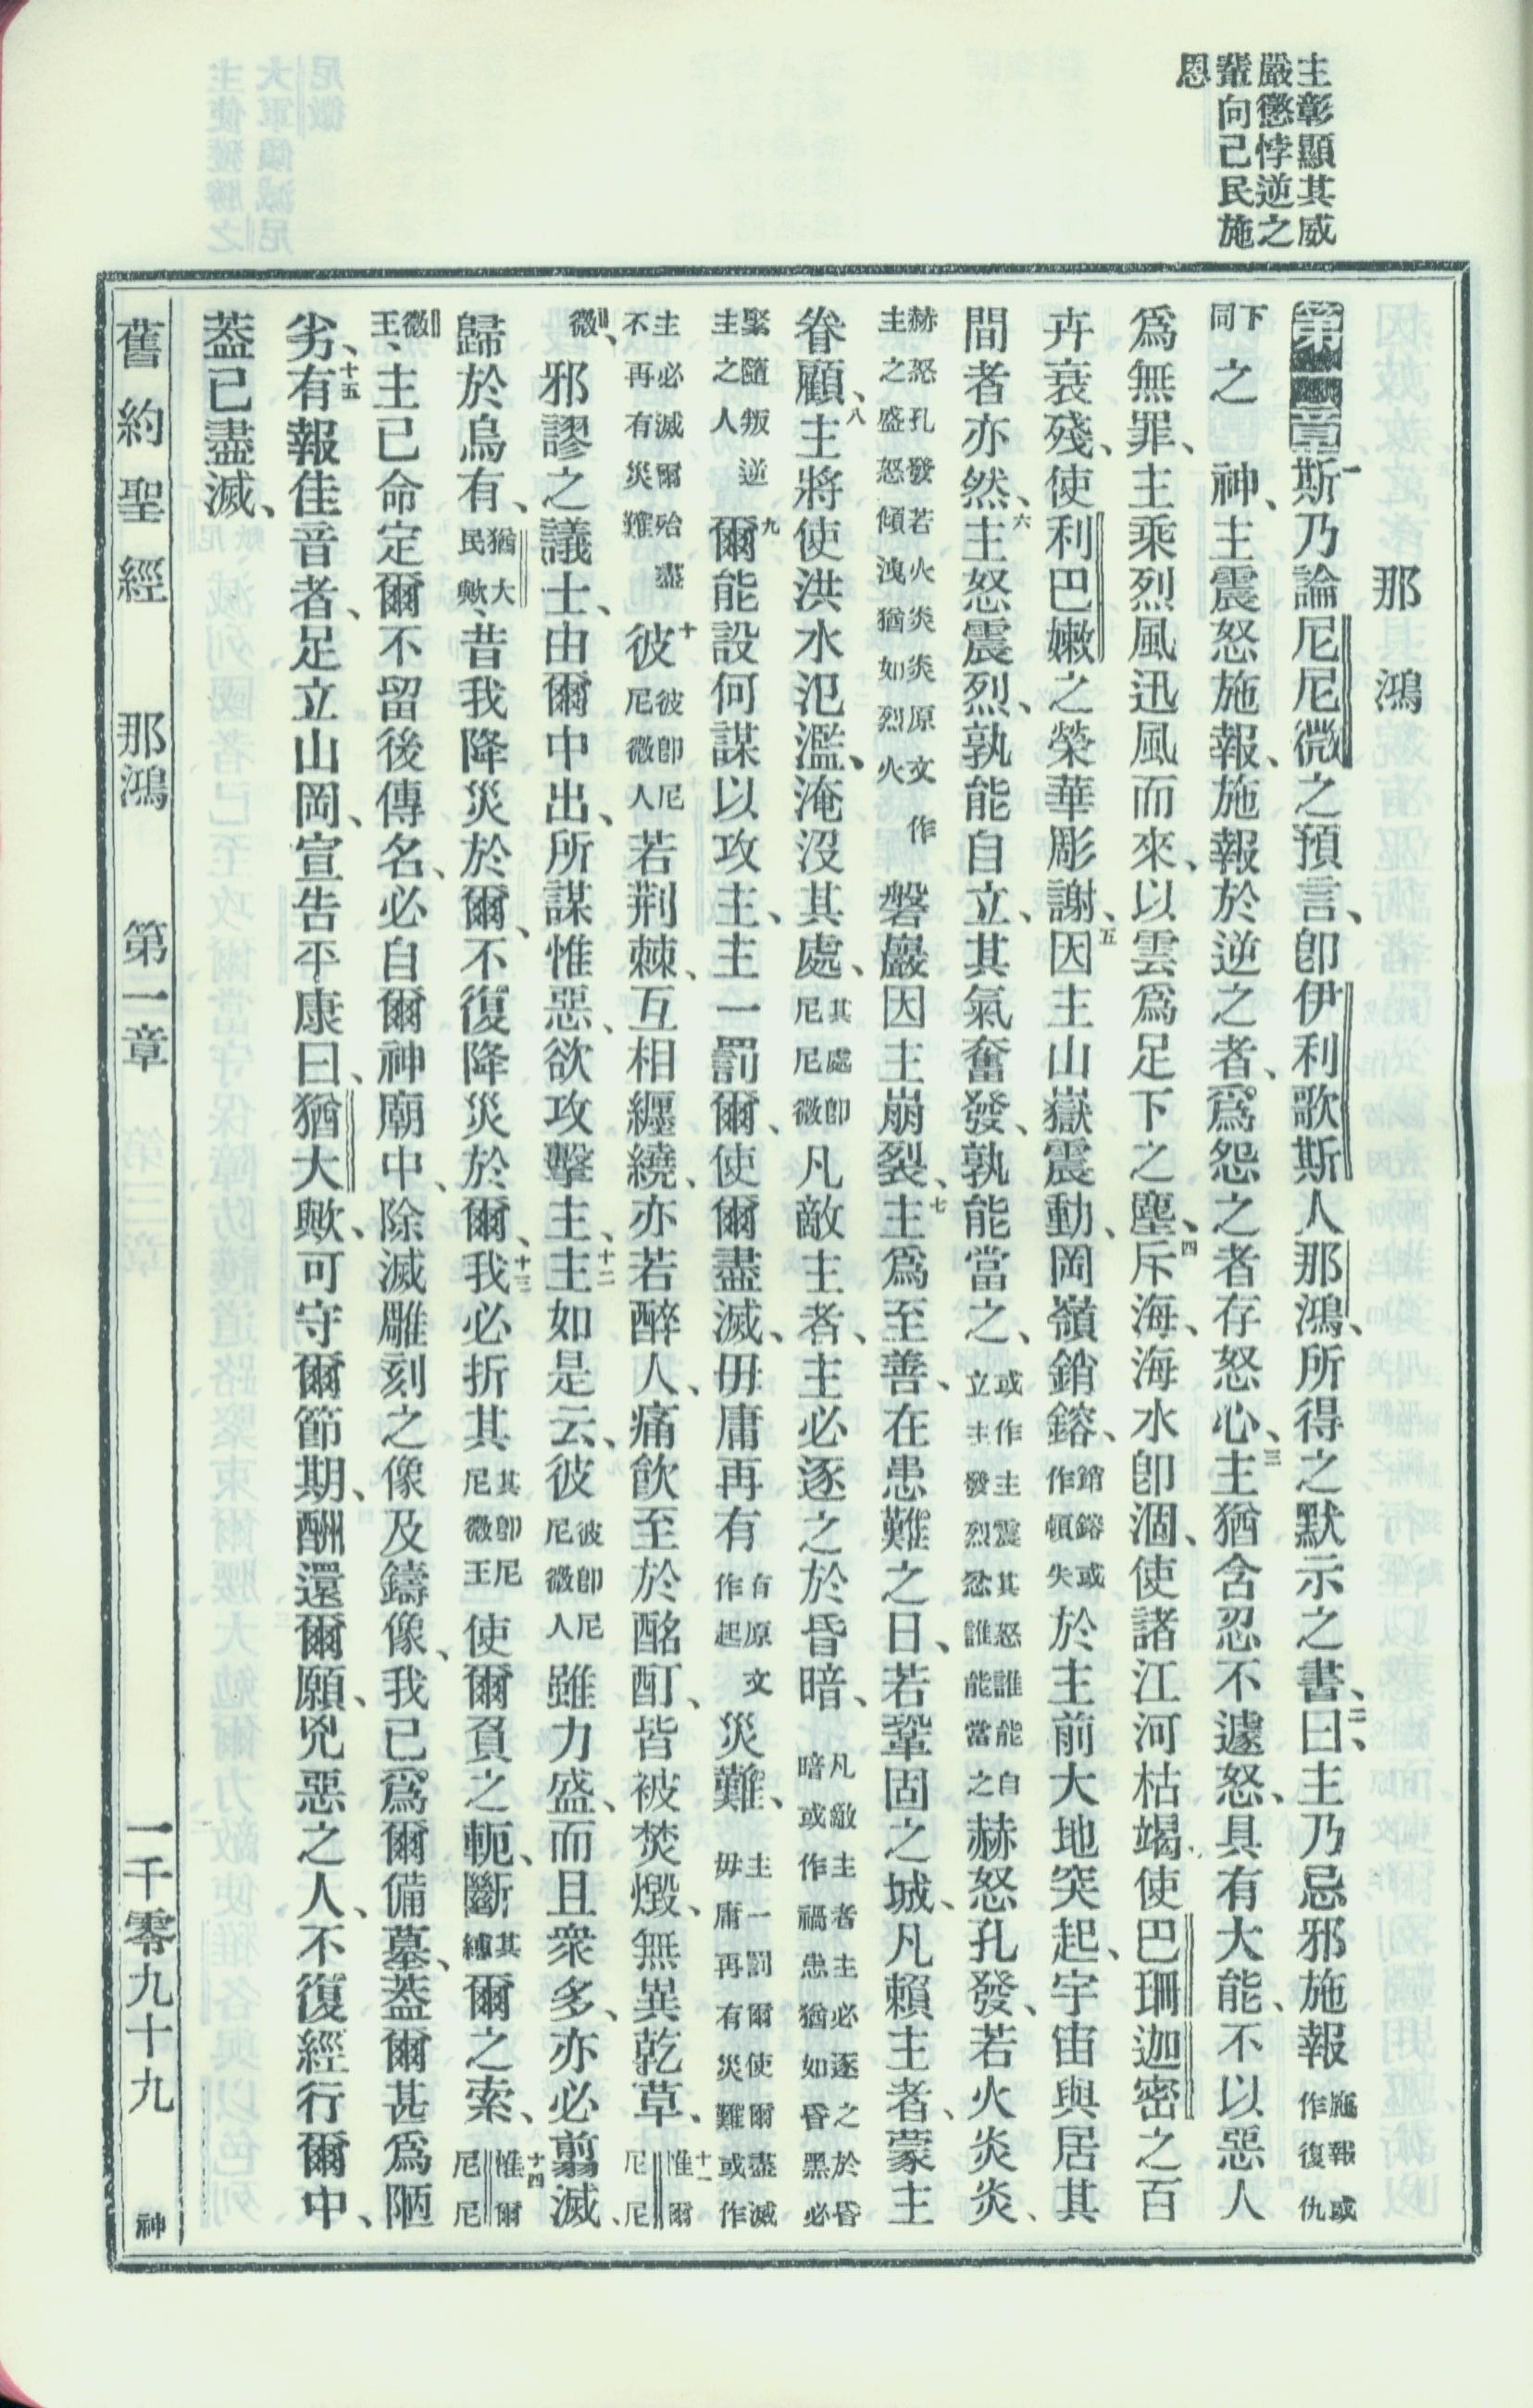 主彰顯其威
嚴懲悖逆之
輩向己民施
恩
那鴻
第一章一斯乃論尼尼微之預言、卽伊利歌斯人那鴻、所得之默示之書、二曰、主乃忌邪施報施報或作復仇
下同之神、主震怒施報、施報於逆之者、爲怨之者存怒心、三主猶含忍不遽怒、具有大能、不以惡人
爲無罪、主乘烈風迅風而來、以雲爲足下之塵、四斥海、海水卽涸、使諸江河枯竭、使巴珊迦密之百
卉衰殘、使利巴嫩之榮華彫謝、五因主山嶽震動、岡嶺銷鎔、銷鎔或作頓失於主前大地突起、宇宙與居其
間者亦然、六主怒震烈、孰能自立、其氣奮發、孰能當之、或作主震其怒誰能自立主發烈忿誰能當之赫怒孔發、若火炎炎、
赫怒孔發若火炎炎原文作主之盛怒傾洩猶如烈火磐巖因主崩裂、七主爲至善、在患難之日、若鞏固之城、凡賴主者、蒙主
眷顧、八主將使洪水氾濫、淹沒其處、其處卽尼尼微凡敵主者、主必逐之於昏暗、凡敵主者主必逐之於昏暗或作禍患猶如昏黑必
緊隨叛逆主之人九爾能設何謀以攻主、主一罰爾、使爾盡滅、毋庸再有有原文作起災難、主一罰爾使爾盡滅毋庸再有災難或作
主必滅爾殆盡不再有災難十彼彼卽尼尼微人若荆棘、互相纏繞、亦若醉人、痛飲至於酩酊、皆被焚燬、無異乾草、十一惟爾尼尼
微、邪謬之議士、由爾中出、所謀惟惡、欲攻擊主、十二主如是云、彼彼卽尼尼微人雖力盛、而且衆多、亦必翦滅、
歸於烏有、猶大民歟、昔我降災於爾、不復降災於爾、十三我必折其其卽尼尼微王使爾負之軛、斷其縛爾之索、十四惟爾尼尼
微王、主已命定爾不留後傳名、必自爾神廟中、除滅雕刻之像及鑄像、我已爲爾備墓、葢爾甚爲陋
劣、十五有報佳音者、足立山岡、宣告平康曰、猶大歟、可守爾節期、酬還爾願、兇惡之人、不復經行爾中、
葢已盡滅、
舊約聖經 那鴻 第一章 一千零九十九 神